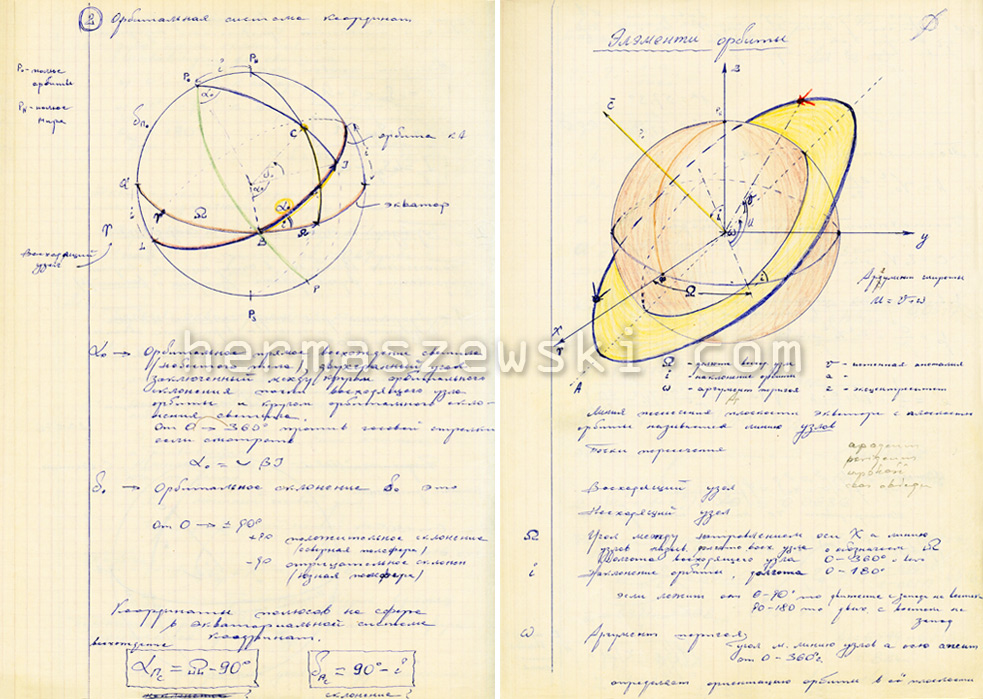 2 Орбитальная система координат
P₀ - полюс
орбиты
P_N - полюс
мира
P₀
i
P_N
α₀
δп₀
C
орбита КА
Q
экватор
i
♈
Ω
α₀
J
L
B
Восходящий
узел
♈
P
P_S
α₀ → Орбитальное прямое восхождение светила
(небесного тела), двухгранный угол
заключенный между кругом орбитального
склонения точки восходящего узла
орбиты и кругом орбитального скло-
нения светила.
От 0 → 360° против часовой стрелки
если смотреть
α₀ = ◡ BJ
δ₀ → Орбитальное склонение δ₀ это
от 0 → ± 90°
+90 положительное склонение
(северная полсфера)
-90 отрицательное склонен
(южная полсфера)
Координаты полюсов на сфере
в экваториальной системе
координат.
восхождение
αп = Ω - 90°
δп = 90° - i
склонение
Элэменти орбиты
z
c̄
i
ω
u
y
i
Ω
x
♈
Аргумент широты
u = v + ω
hermaszewski.com
i - наклонение орбиты
v - истинная аномалия
ω - аргумент перигея
a -
e - эксцентриситет
A
Линия пересечения плоскости экватора с плоскостью
орбиты называется линию узлов
Точки пересечения
Восходящий узел
Нисходящий узел
Ω Угол между направлением оси X и линию
узлов
Долгота восходящего узла 0-360°
i Наклонение орбиты, долгота 0-180°
если лежит от 0-90° то движение с запада на восток
90-180 то движ с востока на
запад
ω Аргумент перигея
угол м. линию узлов и осю апсид
от 0-360°
определяет ориентацию орбиты в её плоскости